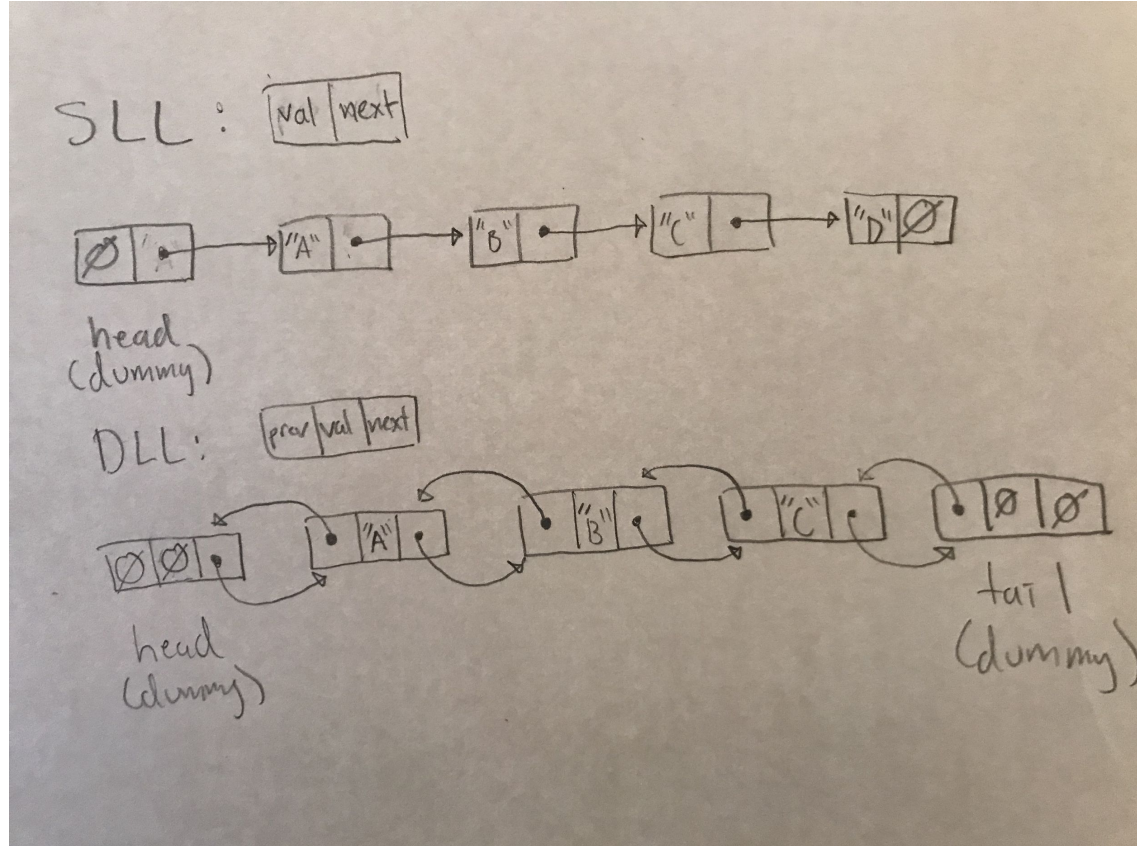 SLL: val next
Ø "A" "B" "C" "D" Ø
head
(dummy)
DLL: prev val next
Ø Ø "A" "B" "C" Ø Ø
head
(dummy)
tail
(dummy)